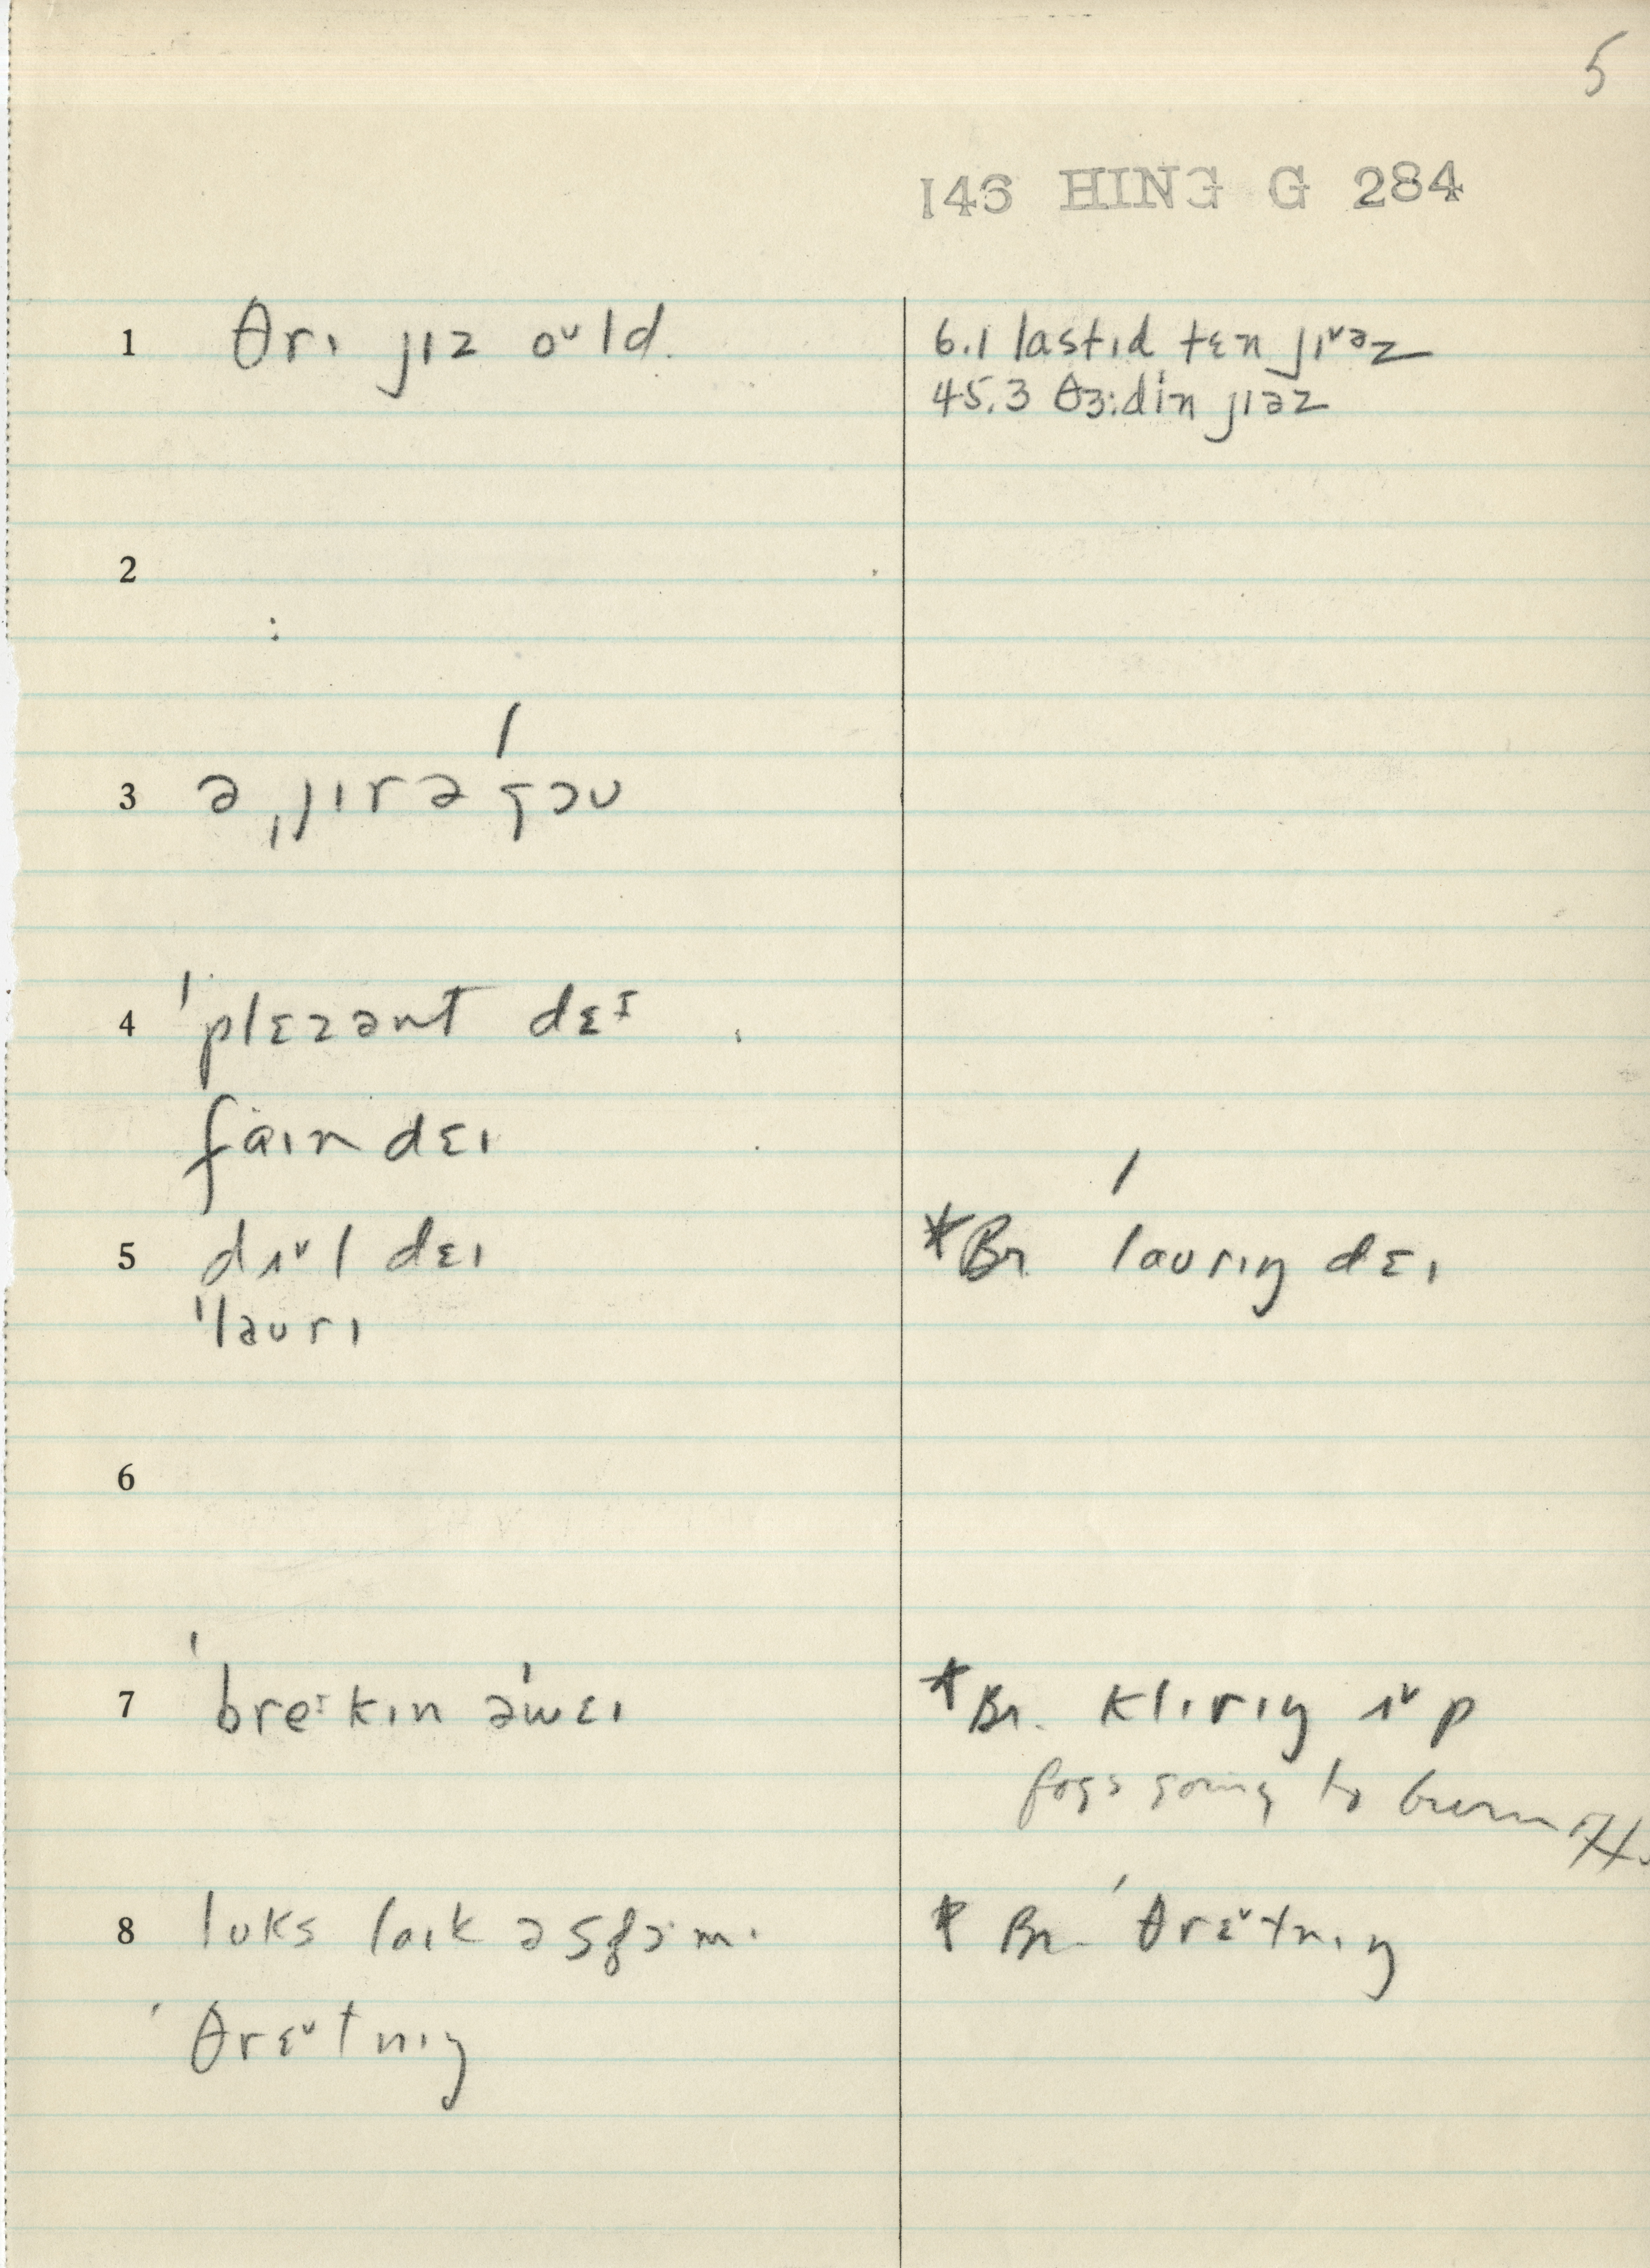 5
146 HING G 284
1 θrɪ jɪz oᵛld.
6.1 lastɪd tɛn jɪᵛəz
45.3 θɜ:din jɪəz
2
3 ə ˌjɪrə ˈgəʊ
4 ˈplɛzənt dɛᴵ
faɪn dɛɪ
5 dʌᵛl dɛɪ
ˈlaʊrɪ
*Br ˈlaʊrɪŋ dɛɪ
6
7 ˈbreᴵkɪn əˈwɛɪ
*Br. klɪrɪŋ ʌᵛp
fogs going to burn
8 lʊks laɪk ə
ˈθrɛᵛtnɪŋ
* Br. ˈθrɛᵛtnɪŋ